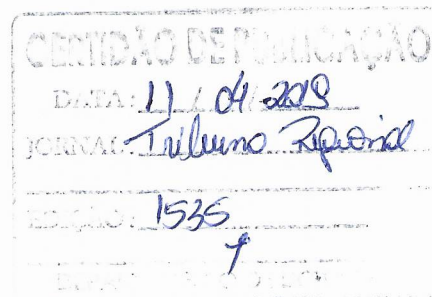 CERTIDÃO DE PUBLICAÇÃO
DATA: 11 / 04 / 2019
JORNAL: Tribuna Regional
EDIÇÃO: 1535